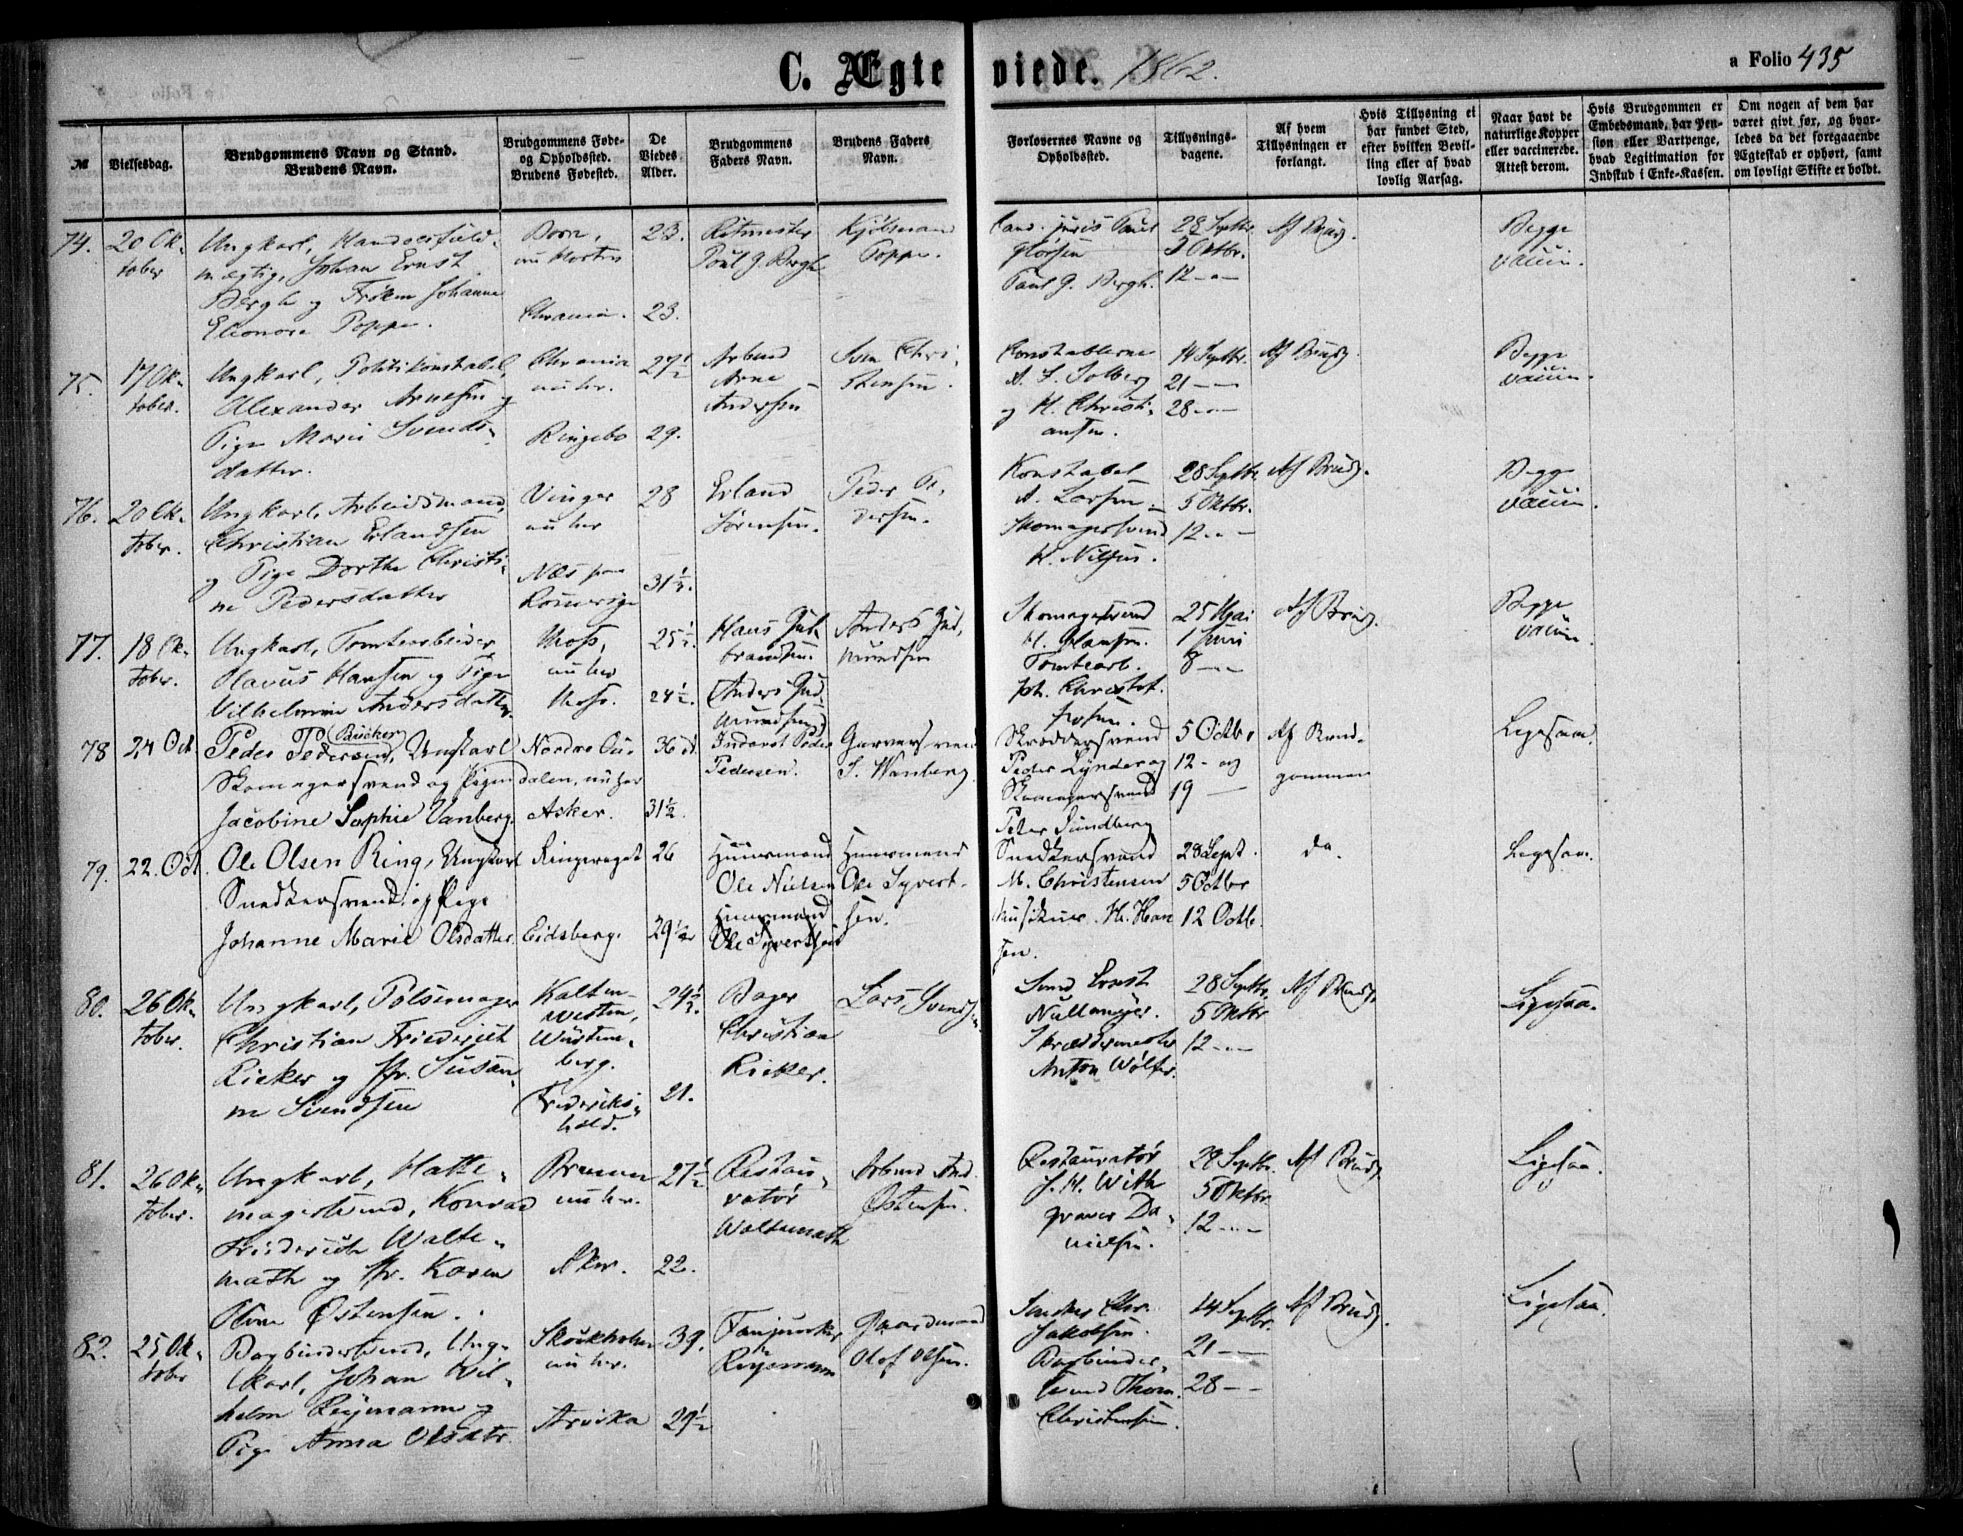 C. Ægteviede. 1862.
a Folio 435
№
Vielsesdag.
Brudgommens Navn og Stand.
Brudens Navn.
Brudgommens Føde-
og Opholdssted.
Brudens Fødested.
De
Viedes
Alder.
Brudgommens
Faders Navn.
Brudens Faders
Navn.
Forlovernes Navne og
Opholdssted.
Tillysnings-
dagene.
Af hvem
Tillysningen er
forlangt.
Hvis Tillysning ei
har fundet Sted,
efter hvilken Bevil-
ling eller af hvad
lovlig Aarsag.
Naar havt de
naturlige Kopper
eller vaccinerede.
Attest derom.
Hvis Brudgommen er
Embedsmand, har Pen-
sion eller Vartpenge,
hvad Legitimation for
Indskud i Enke-Kassen.
Om nogen af dem har
været givt før, og hvor-
ledes da det foregaaende
Ægteskab er ophørt, samt
om lovligt Skifte er holdt.
74.
20 Ok-
tober
Ungkarl, Handelsfuld-
mægtig, Johan Ernst
Bergh og Frøken Johanne
Eleonora Poppe.
nu Horten
Chrania.
23.
23.
Ritmester
Poul G Bergh
Kjøbmand
Poppe.
Cand. juris Poul
Paul G. Bergh.
28 Septbr.
3 Oktbr.
12 - - -
Af Brudg.
Begge
vaccin.
75.
17 Ok-
tober.
Ungkarl, Politikonstabel,
Alexander Arnesen og
Pige Marie Svends-
datter.
Chrania
nu her.
Ringebo
27½
29.
Arbmd
Arne
Andersen
Sven Chri-
stensen.
Constablerne
A. F. Solberg
og H. Christi-
ansen.
14 Septbr.
21 - -
28 - - -
Af Brudg.
Begge
vaccin.
76.
20 Ok-
tober.
Ungkarl, Arbeidsmand,
Christian Erlandsen
og Pige Dorthe Christi-
ne Pedersdatter
Vinger
nu her
Næs paa
Romerige
28
31½.
Erland
Sørensen.
Peder Pe-
dersen.
Konstabel
A. Larsen
Skomagersvend
H. Nilsen.
28 Septbr.
5 Oktbr.
12 - - -
Af Brudg.
Begge
vaccin.
77.
18 Ok-
tober.
Ungkarl, Tomtearbeider
Olavus Hansen og Pige
Vilhelmine Andersdatter.
Moss,
nu her
Moss.
25½.
24½.
Hans Gul-
brandsen.
Anders Gud-
mundsen
Anders Gud-
mundsen
Skomagersvend
H. Hansen.
Tomtearb.
Joh. Christof-
fersen.
25 Mai
1 Juni
8 - -
Af Brudg.
Begge
vaccin.
78
24 Oct
Peder Pedersen, (Bücker) Ungkarl
Skomagersvend og Pigen
Jacobine Sophie Vanberg.
Nordre Ou-
dalen, nu her
Asker.
36
31½.
Inderst Peder
Pedersen.
Garversvend
S. Wanberg.
Skræddersvend
Peder Lynder og
Skomagersvend
Peter Sundberg
5 Octbr
12 - og
19 -
Af Brud-
gommen
Ligesaa.
79.
22. Oct.
Ole Olsen Ring, Ungkarl
Snedkersvend og Pige
Johanne Marie Olsdatter.
Ringeraget
Eidsberg.
26
29½
Huusmand
Ole Nielsen
Huusmand
Ole Syvertsen
Huusmand
Ole Syvert-
sen.
Snedkersvend
M. Christensen
Musikus. H. Han
sen.
28 Sept.
5 Octbr
12 Octb.
do.
Ligesaa.
80.
26 Ok-
tober.
Ungkarl, Pølsemager
Christian Friederich
Rieker og Jfr. Susan-
ne Svendsen
Kalten-
westen,
Würtem-
berg.
Frederiks-
hald.
24½.
21.
Bager
Christian
Rieker.
Lars Svendsen
Smed Ernst
Nullmeyer.
Skræddermester
Anton Wölfer.
28 Septbr.
5 Oktbr
12 - - -
Af Brudg.
Ligesaa.
81.
26 Ok-
tober.
Ungkarl, Hatte-
magersvend, Konrad
Friederich Walte-
math og Jfr. Karen
Olava Østensen.
Bremen
nu her.
Aker.
27½
22.
Restau-
ratør
Waltemath
Arbmd And.
Østensen.
Restauratør
J. H. With
Graver Da-
nielsen.
28 Septbr.
5 Oktbr.
12 - - -
Af Brudg.
Ligesaa.
82.
25 Ok-
tober
Bogbindersvend, Ung-
karl, Johan Wil-
helm Reymann og
Pige Anna Olsdtr.
Stockholm
nu her.
Arvika
39.
29½
Fanjunker
Reymann
Gaardmand
Olof Olsen.
Snedker Chr.
Jakobsen.
Bogbinder-
svend Thom.
Christensen.
14 Septbr.
21 - -
28 - -
Af Brudg.
Ligesaa.